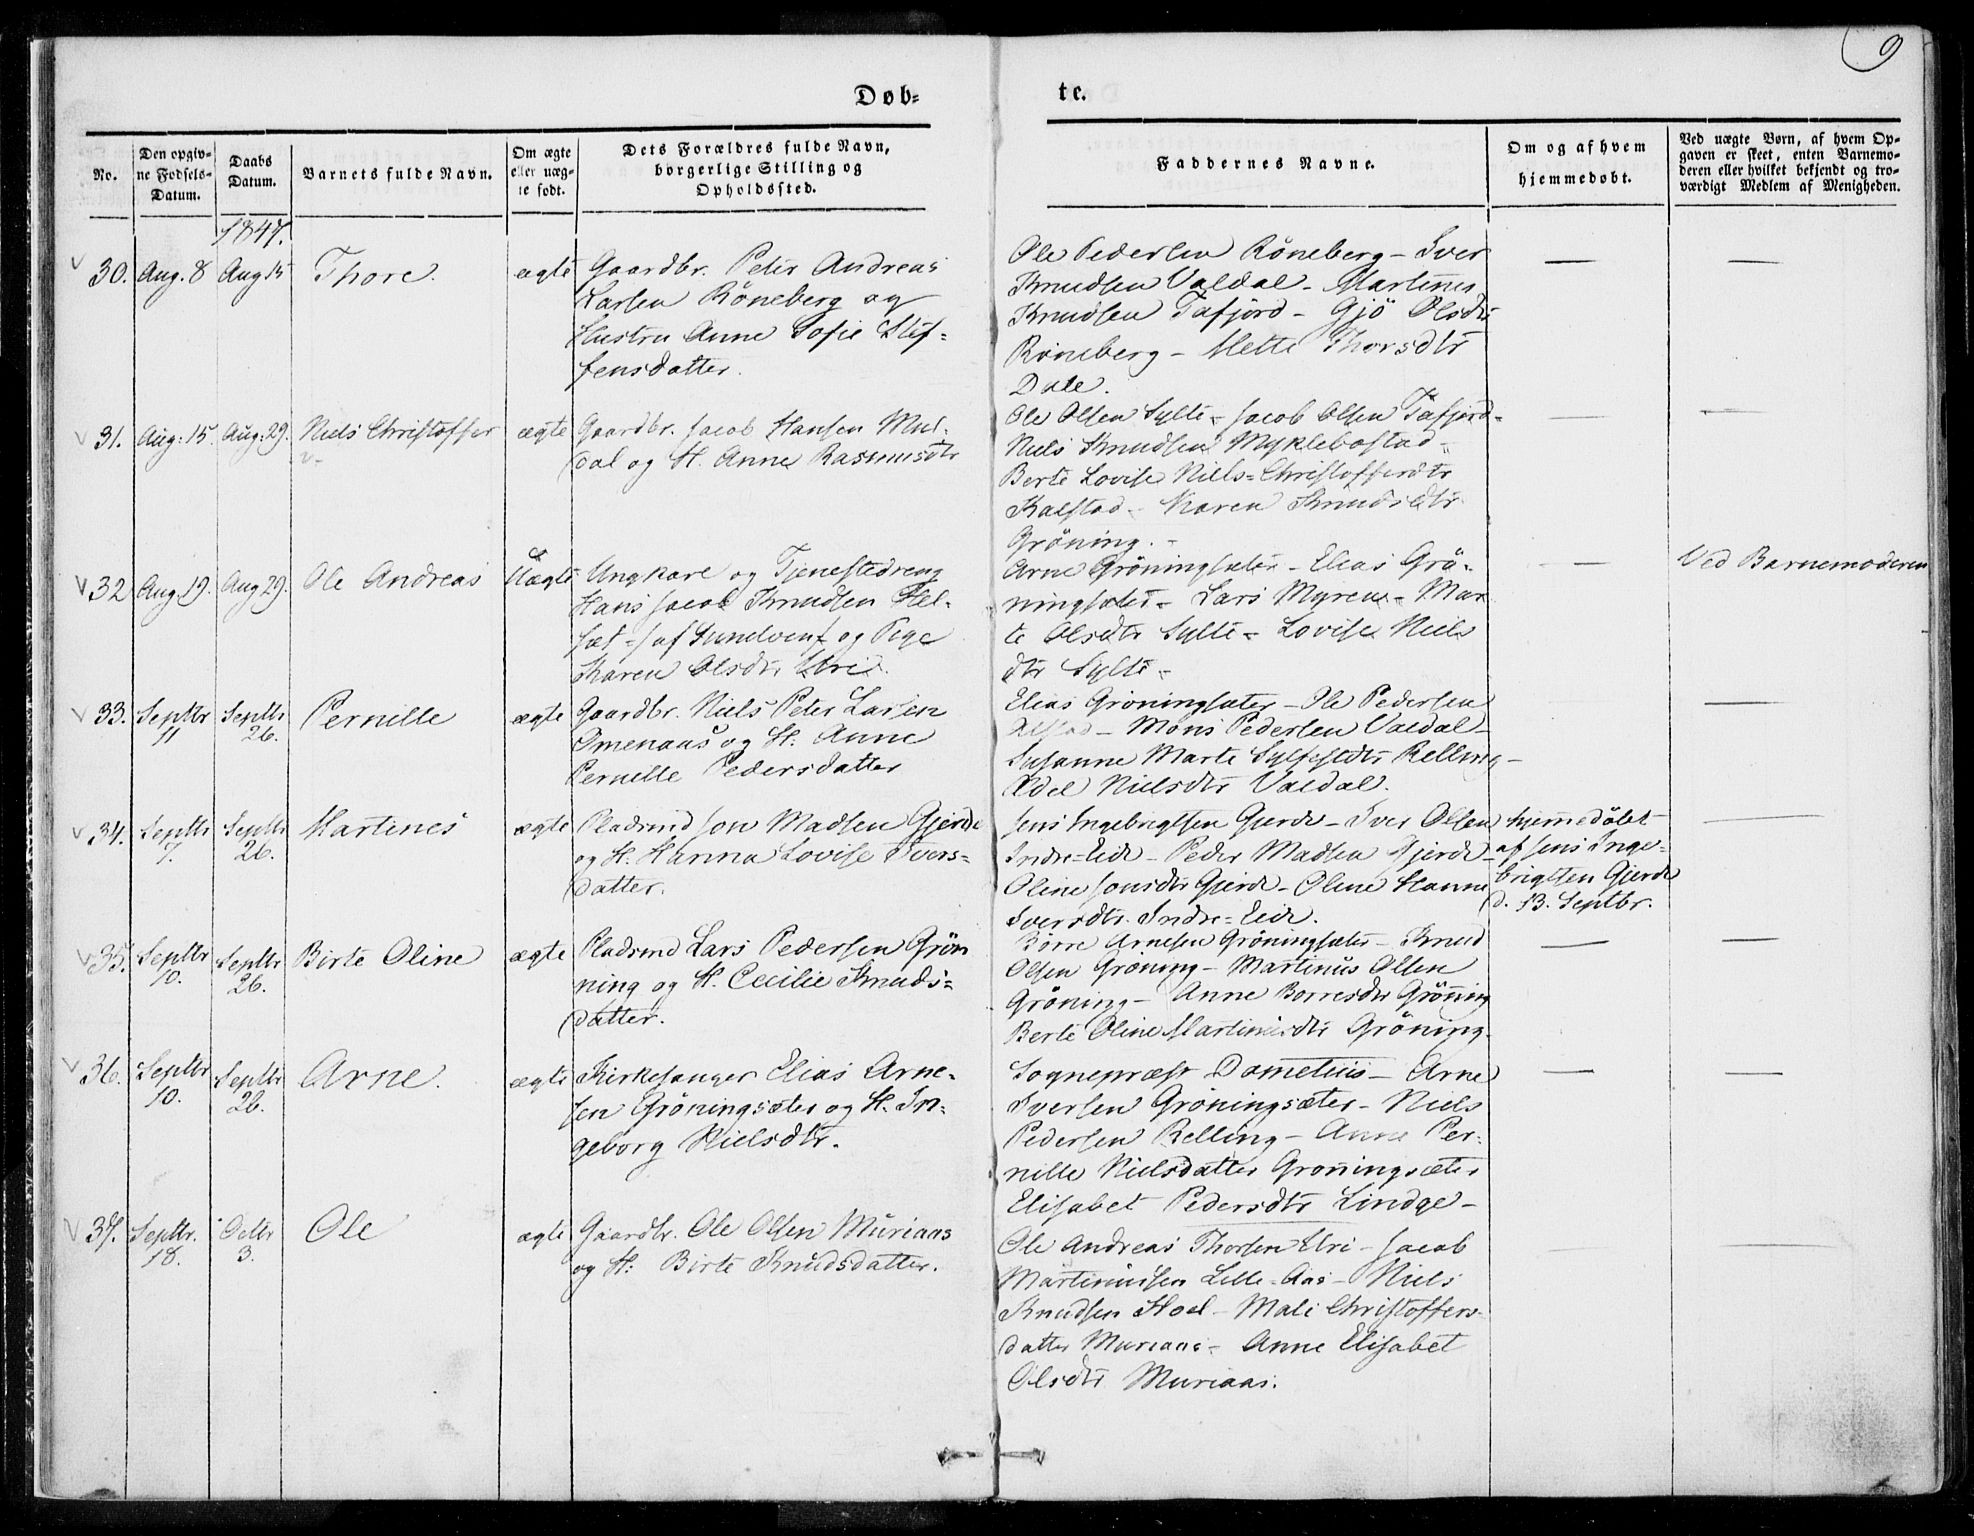 9
Døb-
te.
No.
Den opgiv-
ne Fødsels-
Datum.
Daabs
Datum.
Barnets fulde Navn.
Om ægte
eller uæg-
te født.
Dets Forældres fulde Navn,
borgerlige Stilling og
Opholdssted.
Faddernes Navne.
Om og af hvem
hjemmedøbt.
Ved uægte Børn, af hvem Op-
gaven er skeet, enten Barnemo-
deren eller hvilket bekjendt og tro-
værdigt Medlem af Menigheden.
1847.
30. Aug. 8 Aug 15 Thore. ægte
Gaardbr. Peter Andreas
Larsen Röneberg og
Hustru Anne Sofie Stef-
fensdatter.
Ole Pedersen Röneberg - Iver
Knudsen Valdal - Martinus
Knudsen Tafjord - Gjö Olsdtr
Röneberg - Mette Thorsdtr
Dale.
31. Aug. 15. Aug. 29. Niels Christoffer ægte
Gaardbr. Jacob Hansen Mul-
dal og H. Anne Rasmusdtr
Ole Olsen Sylte - Jacob Olsen Tafjord -
Niels Knudsen Myklebostad -
Berte Lovise Niels-Christofferdtr
Kalstad - Karen Knudsdtr
Gröning. -
32 Aug. 19. Aug 29. Ole Andreas Uægte
Ungkarl og Tjenestedreng
Hans Jacob Knudsen Hel-
sæt - af Sunelven og Pige
Karen Olsdtr Uri.
Arne Gröningsæter - Elias Grö-
ningsæter - Lars Myren - Mar
te Olsdtr Sylte - Lovise Niels
dtr Sylte -
Ved Barnemoderen
33. Septbr 11 Septbr 26. Pernille ægte
Gaardbr. Niels Peter Larsen
Omenaas og H. Anne
Pernille Pedersdatter
Elias Gröningsæter - Ole Pedersen
Alstad - Mons Pedersen Valdal -
Susanne Marte Sylfestdtr Relling -
Edel Nielsdtr Valdal.
34. Septbr 7. Septbr 26. Martines ægte
Pladsmd Jon Madsen Gjerde
og H. Hanna Lovise Ivers-
datter.
Jens Ingebrigtsen Gjerde - Iver Olsen
Indre-Eide - Peder Madsen Gjerde -
Oline Jonsdtr Gjerde - Oline Hanna
Iversdtr. Indre-Eide.
hjemmedöbt
af Jens Inge-
brigtsen Gjerde
d. 13. Septbr.
35. Septbr 10. Septbr 26. Birte Oline ægte
Pladsmd Lars Pedersen Grön
ning og H. Cecilie Knuds-
datter.
Börre Arnesen Gröningsæter - Knud
Olsen Gröning - Martinus Olsen
Gröning - Anne Börresdtr Gröning
Berte Oline Martinusdtr Gröning.
36. Septbr 10. Septbr 26. Arne. ægte
Kirkesanger Elias Arne-
sen Gröningsæter og H. In-
geborg Nielsdtr.
Sognepræst Dometius - Arne
Iversen Gröningsæter - Niels
Pedersen Relling - Anne Per-
nille Nielsdatter Gröningsæter
Elisabet Pedersdtr Lindge -
37. Septbr. 18. Octbr 3. Ole ægte
Gaardbr. Ole Olsen Muriaas
og H: Birte Knudsdatter.
Ole Andreas Thorsen Uri - Jacob
Martinussen Lille-Aas - Niels
Knudsen Hoel - Mali Christoffers-
datter Muriaas - Anne Elisabet
Olsdtr Muriaas.